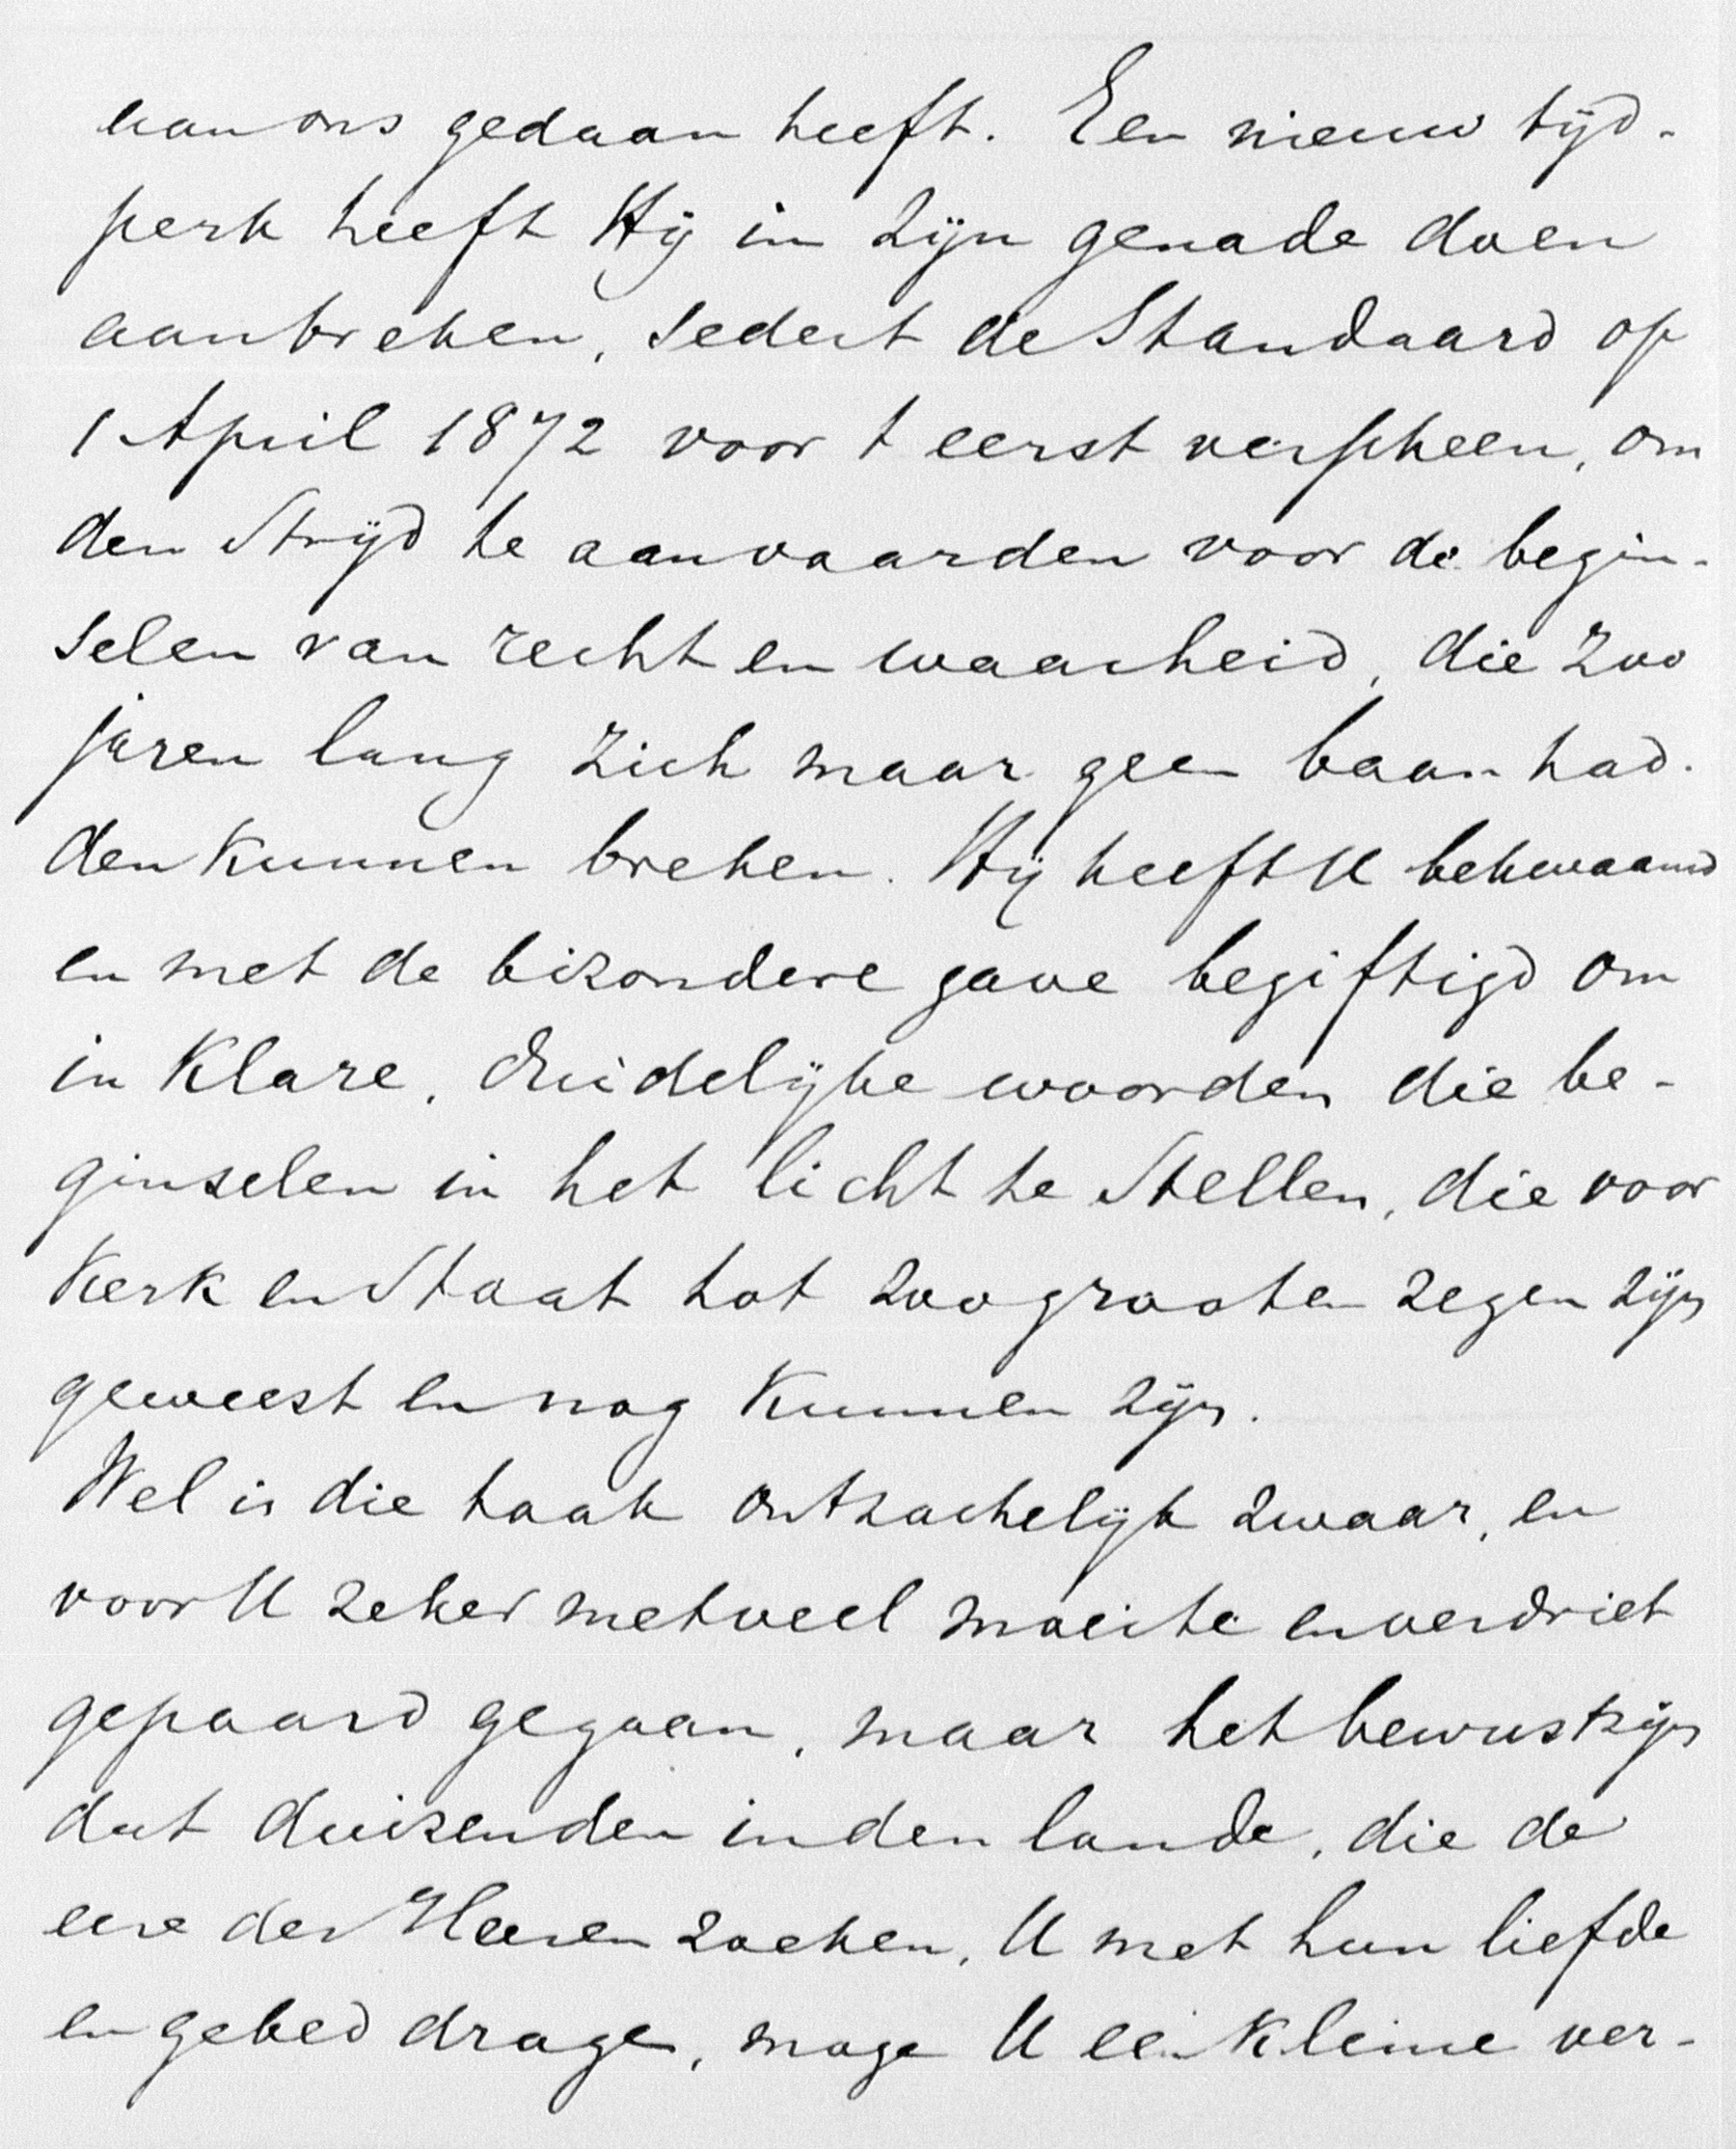 aan ons gedaan heeft. Een nieuw tijd-
perk heeft Hij in Zijn genade doen
aanbreken, sedert de Standaard op
1 April 1872 voor t eerst verscheen, om
den Strijd te aanvaarden voor de begin-
selen van recht en waarheid, die zoo
jaren lang zich maar geen baan had-
den kunnen breken. Hij heeft U bekwaamd
en met de bizondere gave begiftigd om
in klare, duidelijke woorden die be-
ginselen in het licht te Stellen, die voor
Kerk en Staat tot zoo grooten zegen zijn
geweest en nog kunnen zijn.
Wel is die taak ontzachelijk zwaar, en
voor U zeker met veel moeite en verdriet
gepaard gegaan, maar het bewustzijn
dat duizenden in den lande, die de
eere des Heeren zoeken, U met hun liefde
en gebed dragen, moge U een kleine ver-